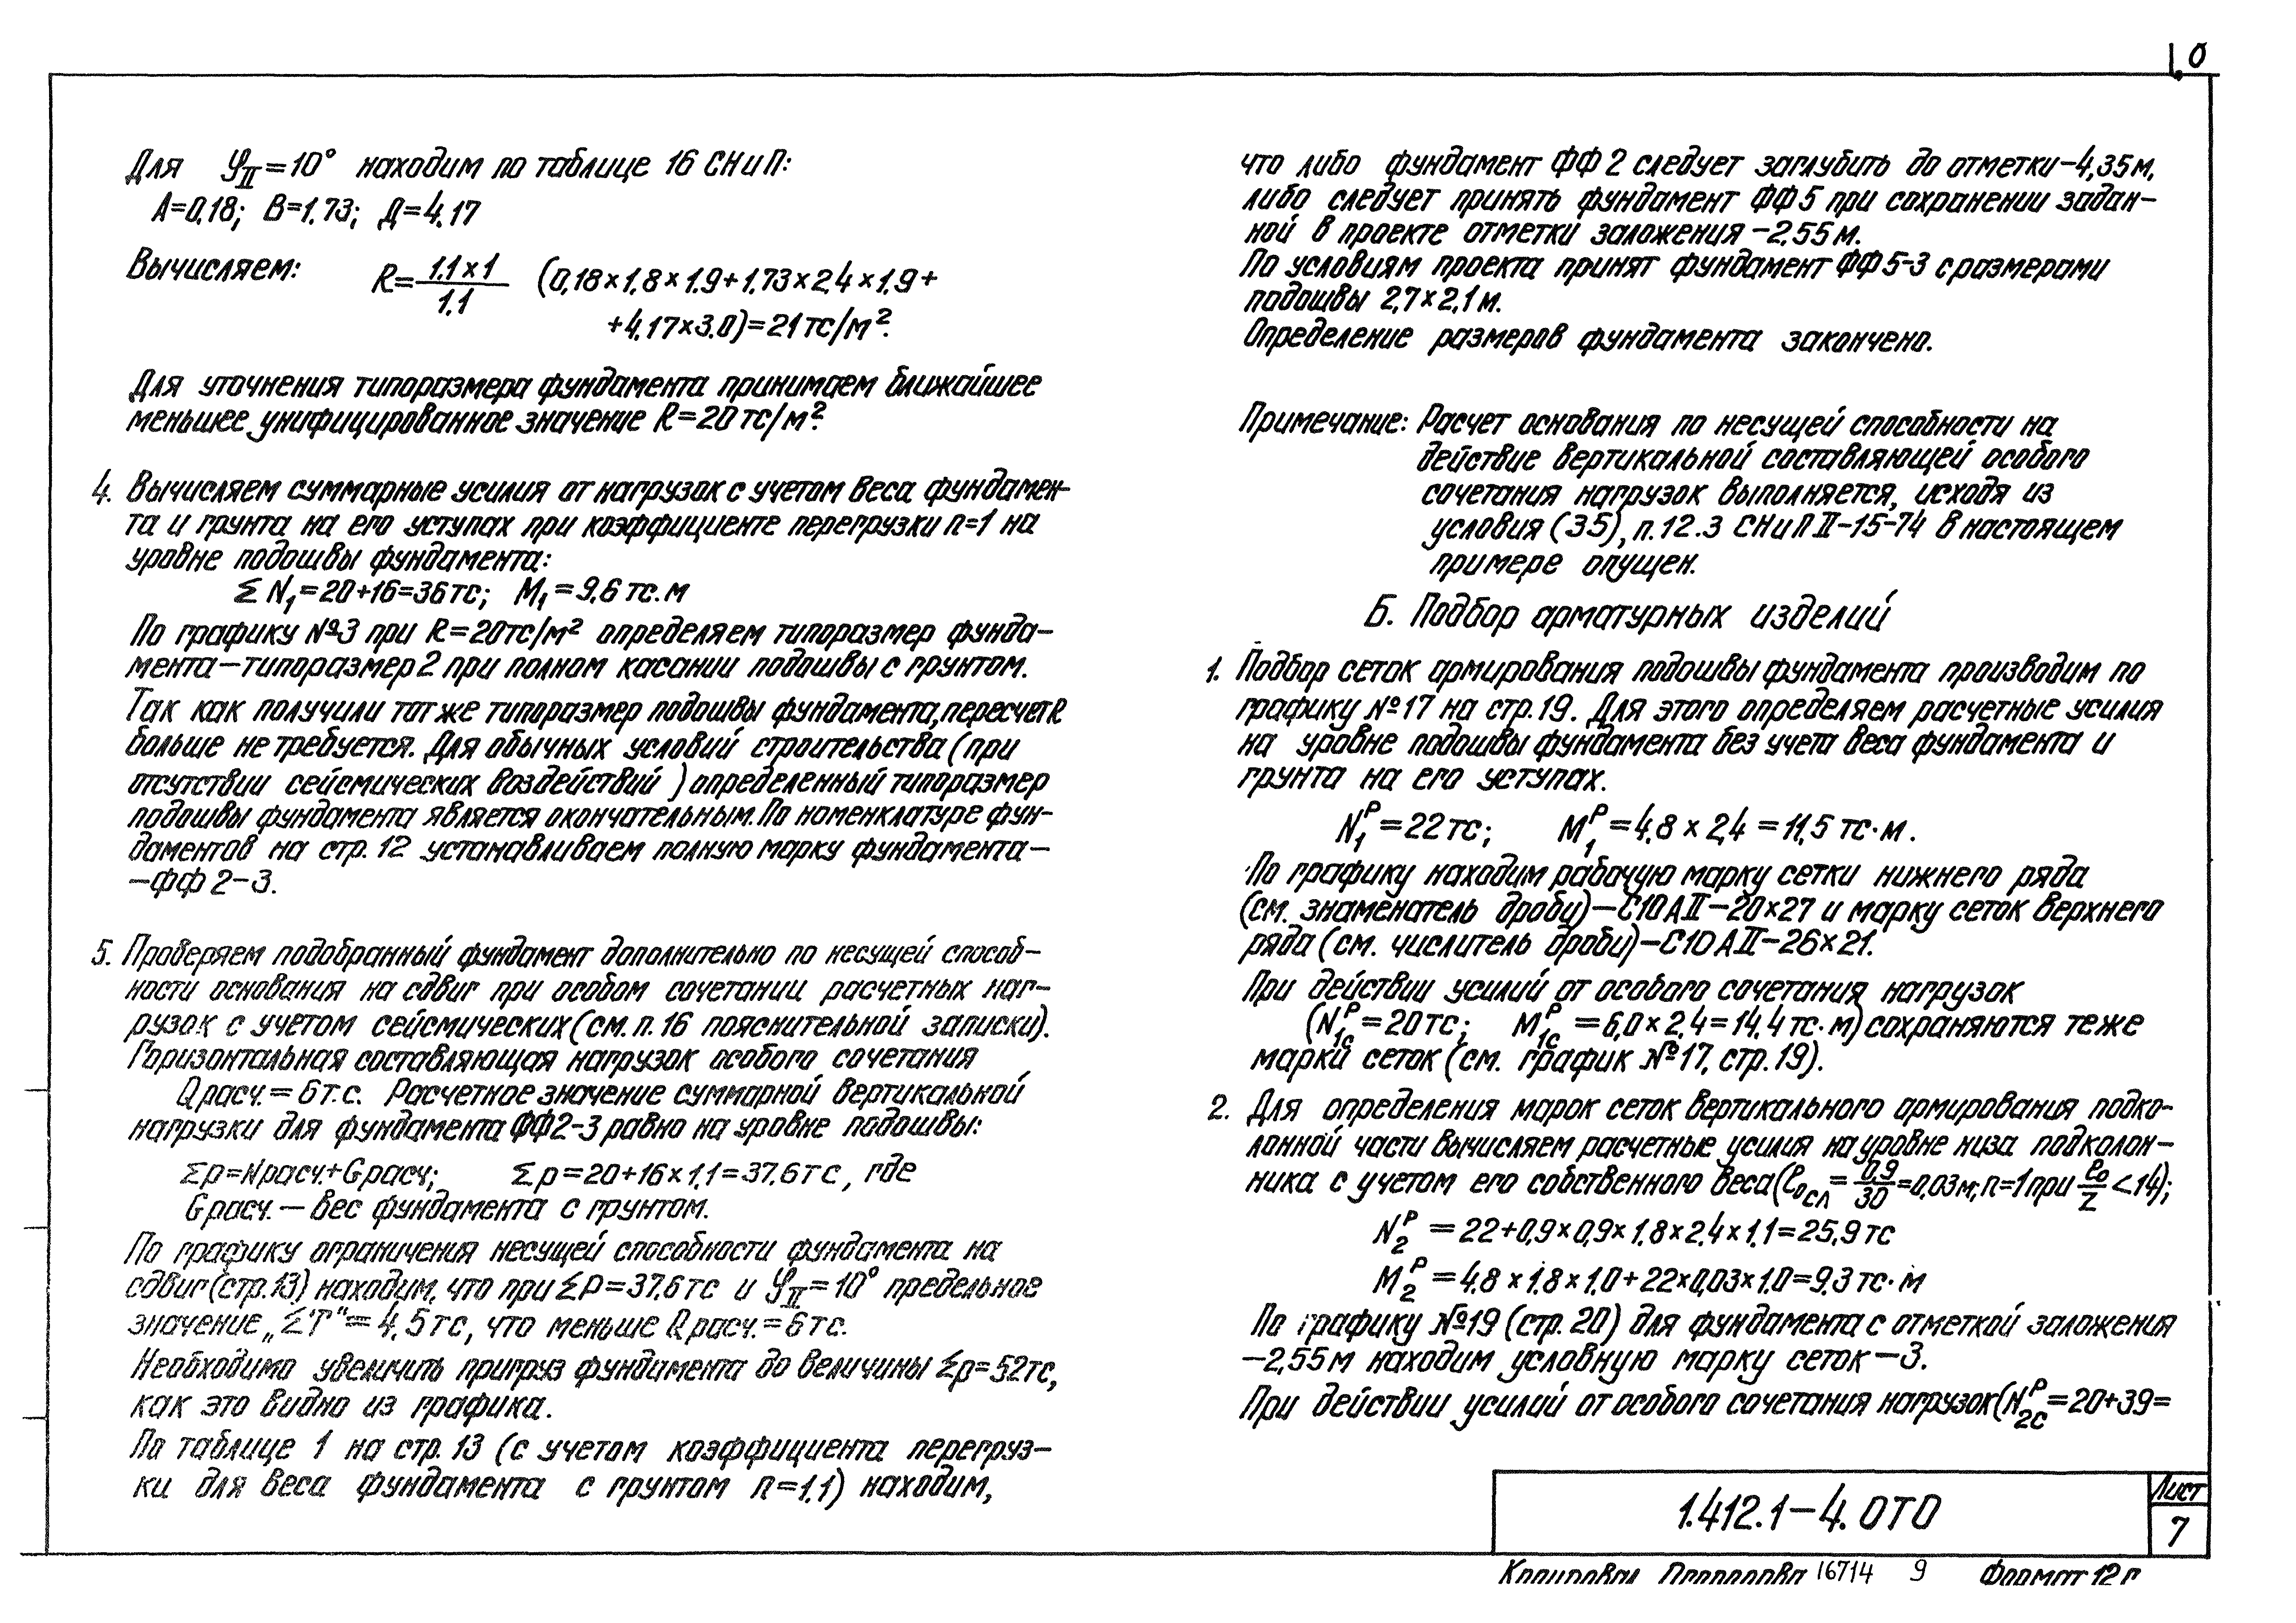 1.0
Для φII=10° находим по таблице 16 СНиП:
А=0,18; В=1,73; Д=4,17
Вычисляем: R= 1,1×1 / 1,1 (0,18×1,8×1,9+1,73×2,4×1,9+
+4,17×3,0)=21тс/м².
Для уточнения типоразмера фундамента принимаем ближайшее
меньшее унифицированное значение R=20 тс/м².
4. Вычисляем суммарные усилия от нагрузок с учетом веса фундамен-
та и грунта на его уступах при коэффициенте перегрузки n=1 на
уровне подошвы фундамента:
Σ N₁=20+16=36тс; М₁=9,6 тс.м
По графику №3 при R=20тс/м² определяем типоразмер фунда-
мента—типоразмер 2 при полном касании подошвы с грунтом.
Так как получили тот же типоразмер подошвы фундамента, пересчет R
больше не требуется. Для обычных условий строительства (при
отсутствии сейсмических воздействий) определенный типоразмер
подошвы фундамента является окончательным. По номенклатуре фун-
даментов на стр. 12 устанавливаем полную марку фундамента—
—ФФ2-3.
5. Проверяем подобранный фундамент дополнительно по несущей способ-
ности основания на сдвиг при особом сочетании расчетных наг-
рузок с учетом сейсмических (см. п. 16 пояснительной записки).
Горизонтальная составляющая нагрузок особого сочетания
Qрасч.=6т.с. Расчетное значение суммарной вертикальной
нагрузки для фундамента ФФ2-3 равно на уровне подошвы:
Σр=Nрасч.+Gрасч.; Σр=20+16×1,1=37,6тс, где
Gрасч.— вес фундамента с грунтом.
По графику ограничения несущей способности фундамента на
сдвиг (стр. 13) находим, что при Σр=37,6тс и φII=10° предельное
значение „ΣТ"=4,5тс, что меньше Qрасч.=6тс.
Необходимо увеличить пригруз фундамента до величины Σр=52тс,
как это видно из графика.
По таблице 1 на стр. 13 (с учетом коэффициента перегруз-
ки для веса фундамента с грунтом n=1,1) находим,
что либо фундамент ФФ2 следует заглубить до отметки -4,35м,
либо следует принять фундамент ФФ5 при сохранении задан-
ной в проекте отметки заложения -2,55м.
По условиям проекта принят фундамент ФФ5-3 с размерами
подошвы 2,7×2,1м.
Определение размеров фундамента закончено.
Примечание: Расчет основания по несущей способности на
действие вертикальной составляющей особого
сочетания нагрузок выполняется, исходя из
условия (35), п.12.3 СНиП II-15-74 в настоящем
примере опущен.
Б. Подбор арматурных изделий
1. Подбор сеток армирования подошвы фундамента производим по
графику №17 на стр.19. Для этого определяем расчетные усилия
на уровне подошвы фундамента без учета веса фундамента и
грунта на его уступах.
N₁ᴾ=22тс; М₁ᴾ=4,8×2,4=11,5 тс·м.
По графику находим рабочую марку сетки нижнего ряда
(см. знаменатель дроби)—С10АII-20×27 и марку сеток верхнего
ряда (см. числитель дроби)—С10АII-26×21.
При действии усилий от особого сочетания нагрузок
(N₁сᴾ=20тс; М₁сᴾ=6,0×2,4=14,4тс·м) сохраняются те же
марки сеток (см. график №17, стр.19).
2. Для определения марок сеток вертикального армирования подко-
лонной части вычисляем расчетные усилия на уровне низа подколон-
ника с учетом его собственного веса (eосл= 0,9/30 =0,03м; n=1 при eо/z <14);
N₂ᴾ=22+0,9×0,9×1,8×2,4×1,1=25,9тс
М₂ᴾ=4,8×1,8×1,0+22×0,03×1,0=9,3тс·м
По графику №19 (стр. 20) для фундамента с отметкой заложения
-2,55м находим условную марку сеток—3.
При действии усилий от особого сочетания нагрузок (N₂сᴾ=20+3,9=
1.412.1-4.0ТО
Лист
7
Копировал 16714 9 Формат 12г